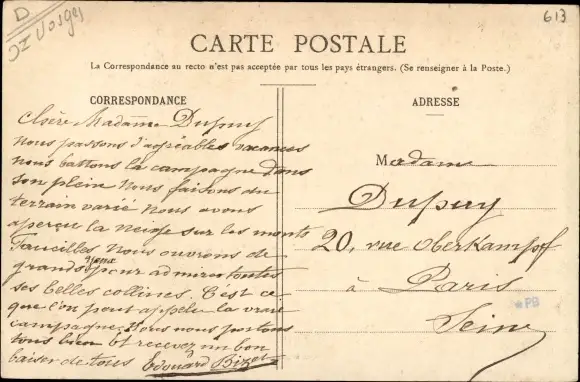 D
Vosges
613
CARTE POSTALE
La Correspondance au recto n'est pas acceptée par tous les pays étrangers. (Se renseigner à la Poste.)
CORRESPONDANCE
chère Madame Dupuy
nous passons d'agréables vacances
nous battons la campagne dans
son plein Nous faisons du
terrain varié Nous avons
aperçu la neige sur les monts
Faucilles Nous ouvrons de
grands yeux pour admirer toutes
ses belles collines C'est ce
que l'on peut appeler la vraie
campagne. Nous nous portons
tous bien et recevez un bon
baiser de tous Edouard Bizot
ADRESSE
Madame
Dupuy
20, rue Oberkampf
à Paris
Seine
PB